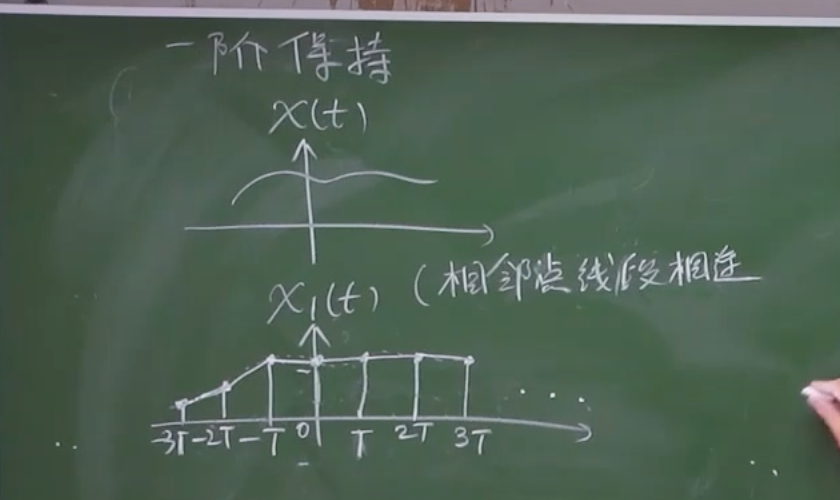 一阶保持
x(t)
x₁(t) (相邻点线段相连
-3T -2T -T 0 T 2T 3T